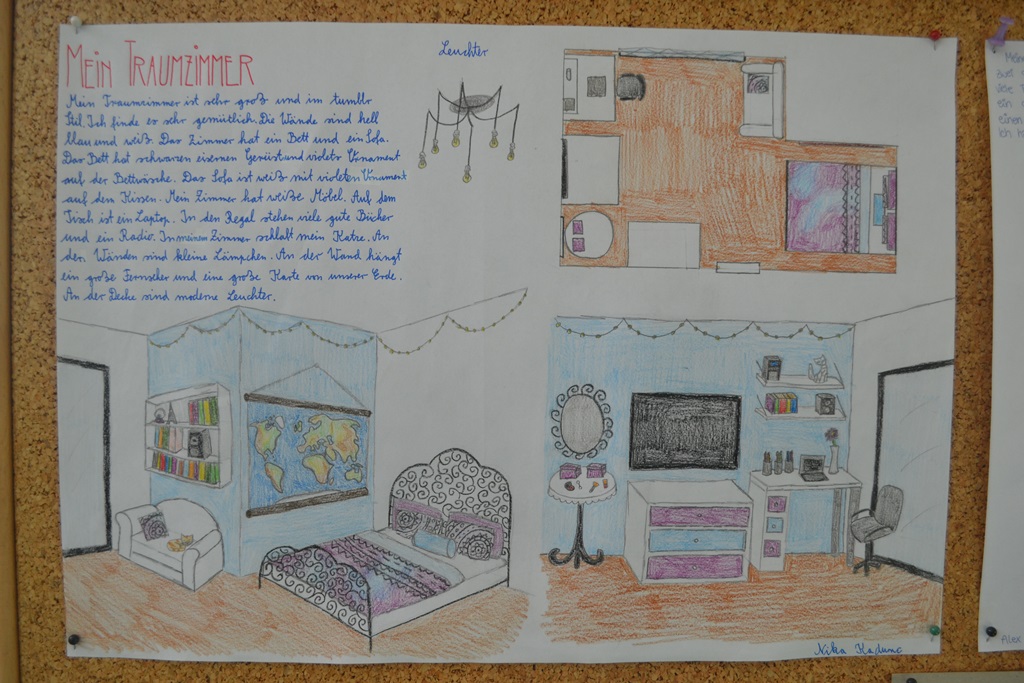 MEIN TRAUMZIMMER
Mein Traumzimmer ist sehr groß und im tumblr
Stil. Ich finde es sehr gemütlich. Die Wände sind hell
blau und weiß. Das Zimmer hat ein Bett und ein Sofa.
Das Bett hat schwarzen eisernen Gerüst und violets Ornament
auf der Bettwäsche. Das Sofa ist weiß mit violeten Ornament
auf den Kissen. Mein Zimmer hat weiße Möbel. Auf dem
Tisch ist ein Laptop. In den Regal stehen viele gute Bücher
und ein Radio. In meinem Zimmer schlaft mein Katze. An
den Wänden sind kleine Lämpchen. An der Wand hängt
ein große Fernseher und eine große Karte von unserer Erde.
An der Decke sind moderne Leuchter.
Leuchter
Nika Kadunc
Meine
zwei
viele
ein
einen
Ich h
Alex